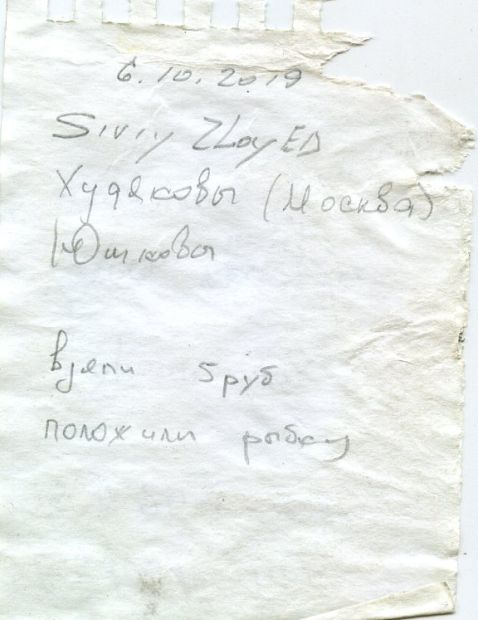 6.10.2019
Siviy ZLoyED
Худяковы (Москва)
Юшковы
взяли 5 руб
положили рыбку